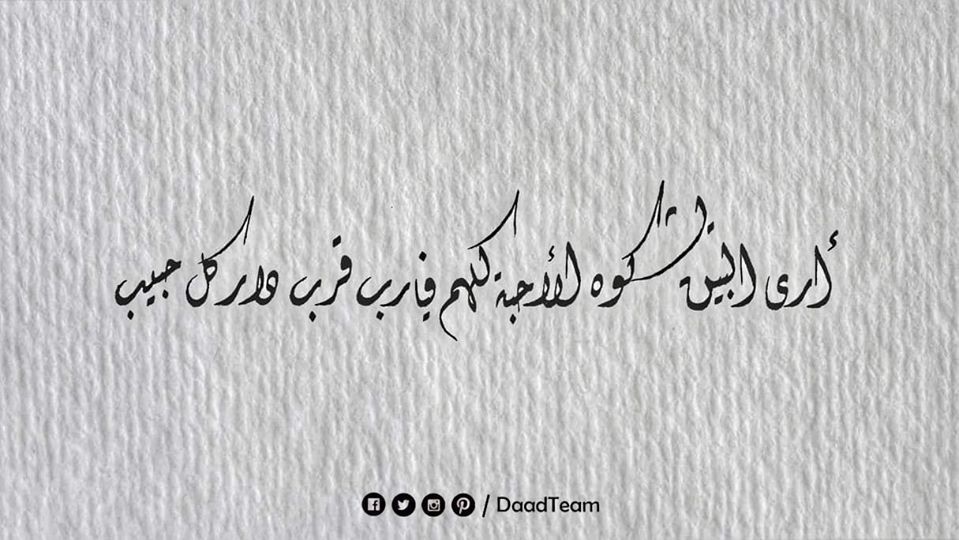 أرى البين يشكوه الأحبة كلهم فيارب قرب دار كل حبيب
/ DaadTeam